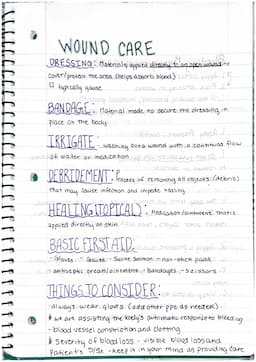 WOUND CARE
DRESSING: Materials applied directly to an open wound to
cover/protect the area (helps absorb blood)
typically gauze
BANDAGE: Material made to secure the dressing in
place on the body.
IRRIGATE: washing out a wound with a continual flow
of water or medication
DEBRIDEMENT: Process of removing all objects (debris)
that may cause infection and impede healing
HEALING (TOPICAL): Medication/ointment that is
applied directly on skin
BASIC FIRST AID:
Gloves · Gauze · Saline solution · non-stick pads
antiseptic cream/ointment · bandages · scissors
THINGS TO CONSIDER:
always wear gloves (add other ppe as needed)
we are assisting the body's automatic response to bleeding
- blood vessel constriction and clotting
Severity of blood loss - visible blood loss and
Patient's S/Sx - keep in your mind as providing care